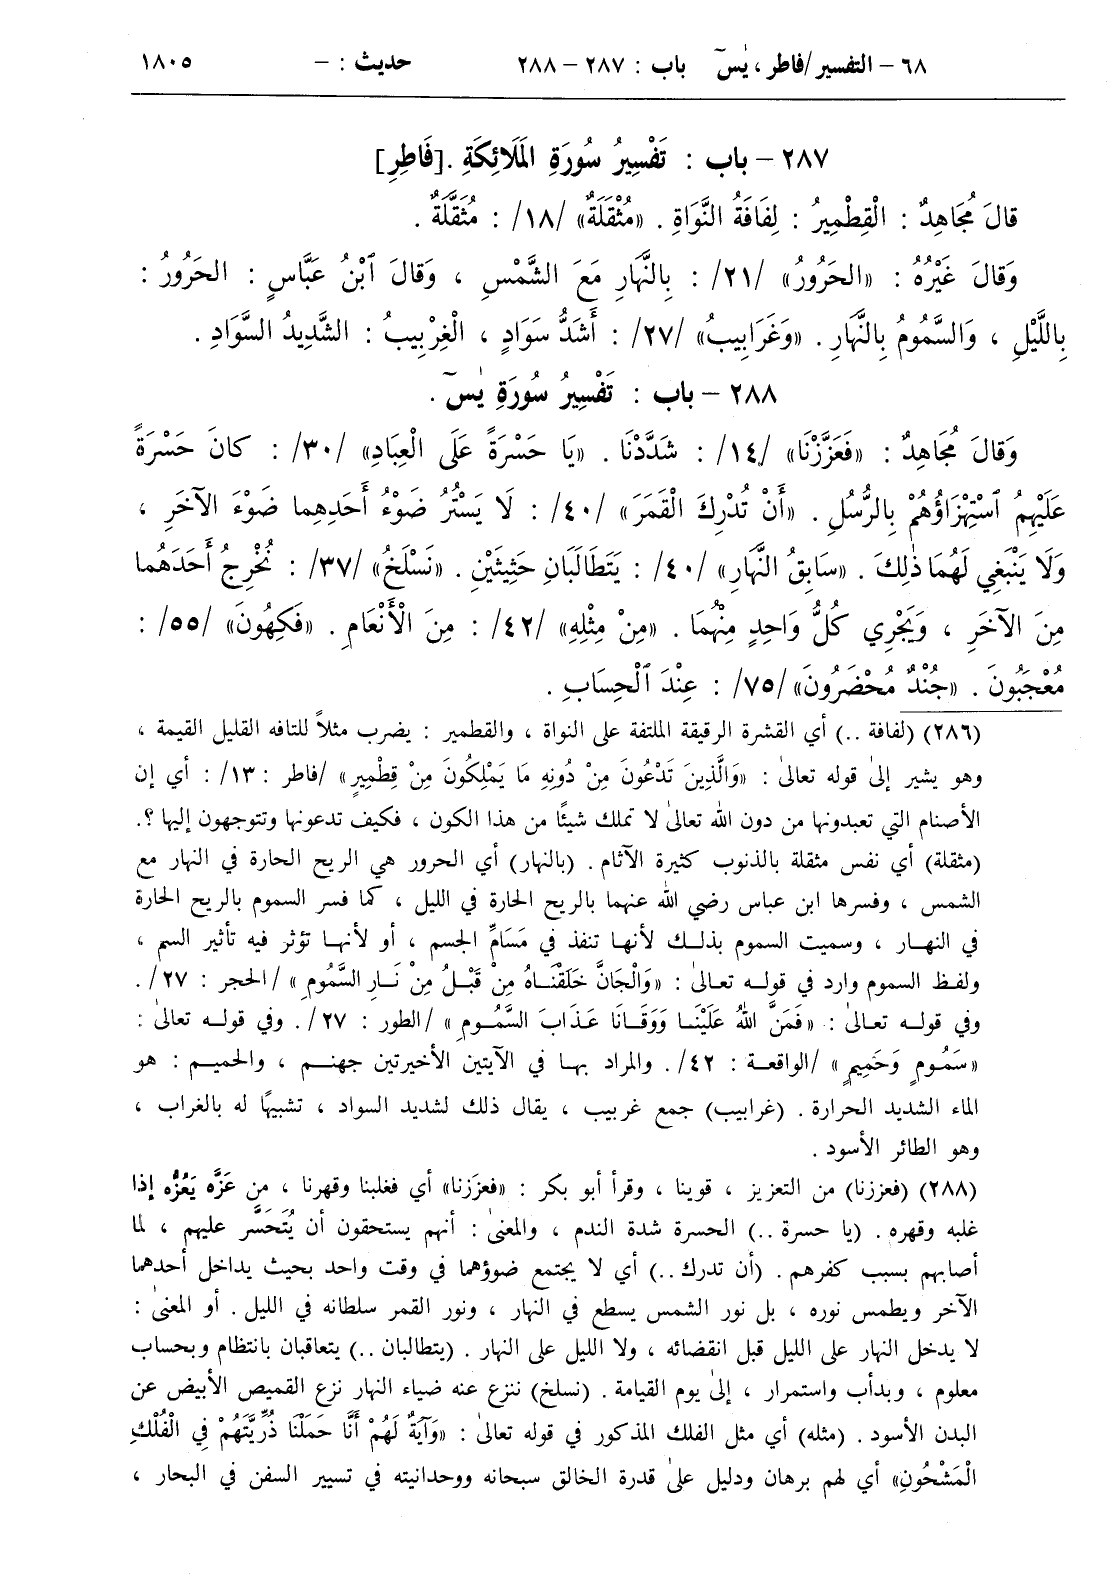 ٦٨ – التفسير/فاطر ، يٰسٓ باب : ٢٨٧ – ٢٨٨ حديث : – ١٨٠٥
٢٨٧ – باب : تَفْسِيرُ سُورَةِ المَلَائِكَةِ .[فَاطِرِ]
قالَ مُجَاهِدٌ : الْقِطْمِيرُ : لِفَافَةُ النَّوَاةِ . «مُثْقَلَةٌ» /١٨/ : مُثَقَّلَةٌ .
وَقالَ غَيْرُهُ : «الحَرُورُ» /٢١/ : بِالنَّهَارِ مَعَ الشَّمْسِ ، وَقالَ ٱبْنُ عَبَّاسٍ : الحَرُورُ :
بِاللَّيْلِ ، وَالسَّمُومُ بِالنَّهَارِ . «وَغَرَابِيبُ» /٢٧/ : أَشَدُّ سَوَادٍ ، الْغِرْبِيبُ : الشَّدِيدُ السَّوَادِ .
٢٨٨ – باب : تَفْسِيرُ سُورَةِ يٰسٓ .
وَقالَ مُجَاهِدٌ : «فَعَزَّزْنَا» /١٤/ : شَدَّدْنَا . «يَا حَسْرَةً عَلَى الْعِبَادِ» /٣٠/ : كانَ حَسْرَةً
عَلَيْهِمُ ٱسْتِهْزَاؤُهُمْ بِالرُّسُلِ . «أَنْ تُدْرِكَ الْقَمَرَ» /٤٠/ : لَا يَسْتُرُ ضَوْءُ أَحَدِهِما ضَوْءَ الآخَرِ ،
وَلَا يَنْبَغِي لَهُمَا ذٰلِكَ . «سَابِقُ النَّهَارِ» /٤٠/ : يَتَطَالَبَانِ حَثِيثَيْنِ . «نَسْلَخُ» /٣٧/ : نُخْرِجُ أَحَدَهُما
مِنَ الآخَرِ ، وَيَجْرِي كُلُّ وَاحِدٍ مِنْهُمَا . «مِنْ مِثْلِهِ» /٤٢/ : مِنَ الْأَنْعَامِ . «فَكِهُونَ» /٥٥/ :
مُعْجَبُونَ . «جُنْدٌ مُحْضَرُونَ» /٧٥/ : عِنْدَ ٱلْحِسَابِ .
(٢٨٦) (لفافة ..) أي القشرة الرقيقة الملتفة على النواة ، والقطمير : يضرب مثلاً للتافه القليل القيمة ،
وهو يشير إلىٰ قوله تعالىٰ : «وَالَّذِينَ تَدْعُونَ مِنْ دُونِهِ مَا يَمْلِكُونَ مِنْ قِطْمِيرٍ» /فاطر : ١٣/ : أي إن
الأصنام التي تعبدونها من دون الله تعالىٰ لا تملك شيئًا من هذا الكون ، فكيف تدعونها وتتوجهون إليها ؟.
(مثقلة) أي نفس مثقلة بالذنوب كثيرة الآثام . (بالنهار) أي الحرور هي الريح الحارة في النهار مع
الشمس ، وفسرها ابن عباس رضي الله عنهما بالريح الحارة في الليل ، كما فسر السموم بالريح الحارة
في النهـار ، وسميت السموم بذلـك لأنهـا تنفذ في مَسَامِّ الجسم ، أو لأنهـا تؤثر فيه تأثير السم ،
ولفـظ السموم وارد في قولـه تعـالىٰ : «وَالْجَانَّ خَلَقْنَـاهُ مِنْ قَبْـلُ مِنْ نَـارِ السَّمُومِ » /الحجر : ٢٧/ .
وفي قولـه تعـالىٰ : «فَمَنَّ اللهُ عَلَيْنَـا وَوَقَـانَا عَـذَابَ السَّمُـومِ » /الطور : ٢٧/ . وفي قولـه تعالىٰ :
«سَمُـومٍ وَحَمِيمٍ » /الواقعـة : ٤٢/ . والمراد بهـا في الآيتين الأخيرتين جهنـم ، والحميـم : هو
الماء الشديد الحرارة . (غرابيب) جمع غربيب ، يقال ذلك لشديد السواد ، تشبيهًا له بالغراب ،
وهو الطائر الأسود .
(٢٨٨) (فعززنا) من التعزيز ، قوينا ، وقرأ أبو بكر : «فعزَزنا» أي فغلبنا وقهرنا ، من عَزَّه يَعُزُّه إذا
غلبه وقهره . (يا حسرة ..) الحسرة شدة الندم ، والمعنىٰ : أنهم يستحقون أن يُتَحَسَّر عليهم ، لما
أصابهم بسبب كفرهم . (أن تدرك ..) أي لا يجتمع ضوؤهما في وقت واحد بحيث يداخل أحدهما
الآخر ويطمس نوره ، بل نور الشمس يسطع في النهار ، ونور القمر سلطانه في الليل . أو المعنىٰ :
لا يدخل النهار على الليل قبل انقضائه ، ولا الليل على النهار . (يتطالبان ..) يتعاقبان بانتظام وبحساب
معلوم ، وبدأب واستمرار ، إلىٰ يوم القيامة . (نسلخ) ننزع عنه ضياء النهار نزع القميص الأبيض عن
البدن الأسود . (مثله) أي مثل الفلك المذكور في قوله تعالىٰ : «وَآيَةٌ لَهُمْ أَنَّا حَمَلْنَا ذُرِّيَّتَهُمْ فِي الْفُلْكِ
الْمَشْحُونِ» أي لهم برهان ودليل علىٰ قدرة الخالق سبحانه ووحدانيته في تسيير السفن في البحار ،